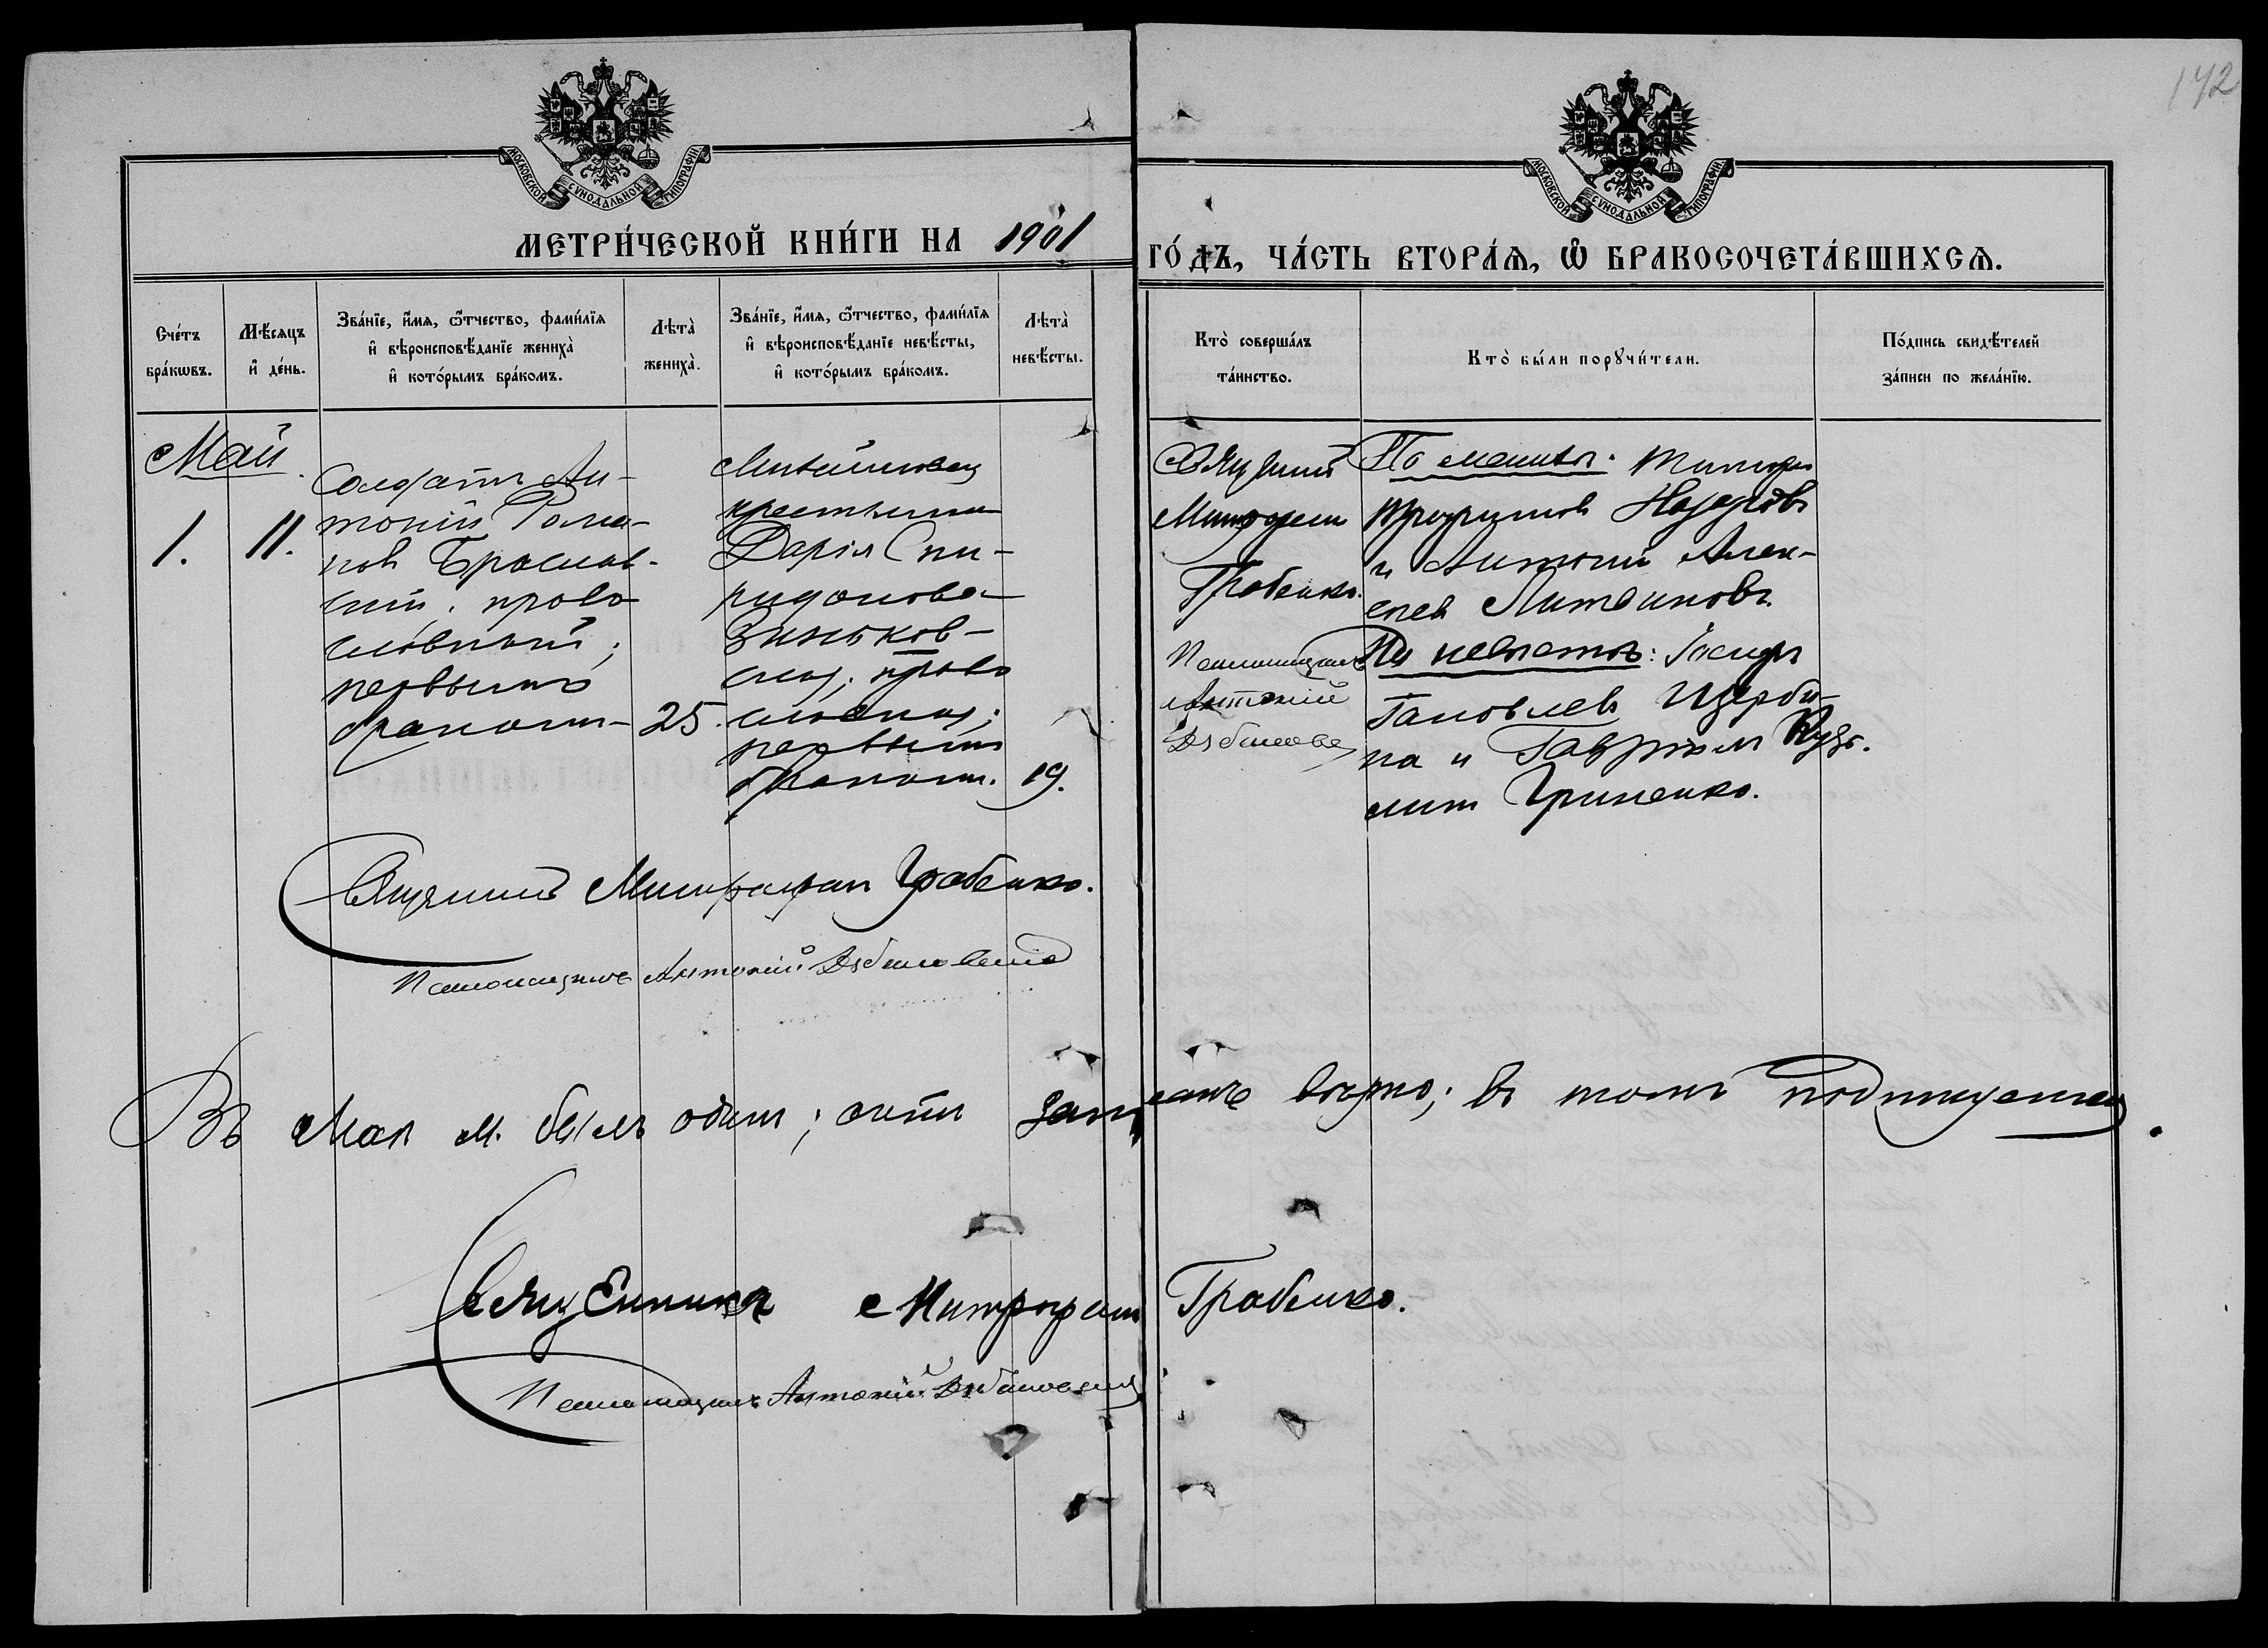 142
МОСКОВСКОЙ СУНОДАЛЬНОЙ ТИПОГРАФІИ
МОСКОВСКОЙ СУНОДАЛЬНОЙ ТИПОГРАФІИ
МЕТРИ́ЧЕСКОЙ КНИ́ГИ НА 1901
ГО́ДЪ, ЧА́СТЬ ВТОРА́Ѧ, Ѽ БРАКОСОЧЕТА́ВШИХСѦ.
Сче́тъ
бра́кѡвъ.
Мѣ́сяцъ
и҆ де́нь.
Зва́нїе, и҆́мя, ѻ҆́тчество, фами́лїя
и҆ вѣроисповѣ́данїе жениха̀
и҆ кото́рымъ бра́комъ.
Лѣта̀
жениха̀.
Зва́нїе, и҆́мя, ѻ҆́тчество, фами́лїя
и҆ вѣроисповѣ́данїе невѣ́сты,
и҆ кото́рымъ бра́комъ.
Лѣта̀
невѣ́сты.
Кто̀ соверша́лъ
та́инство.
Кто̀ бы́ли порꙋчи́тели.
По́дпись свидѣ́телей
за́писи по жела́нїю.
Май.
1.
11.
Солдатъ Ан-
тоній Рома-
новъ Браслав-
скій, право
славный;
первымъ
бракомъ
25.
крестьянка
Дарія Спи-
ридонова
Зиньков-
ская, право
славная;
первымъ
бракомъ.
19.
Священникъ
Митрофанъ
Грабенко.
Псаломщикъ
Антоній
По женихѣ:
Трофимовъ Назаровъ
и Антоній Алек-
сеевъ Литвиновъ.
По невѣстѣ:
Яковлевъ Щерби-
на и Гавріилъ Кузь-
минъ Гриненко.
Священникъ Митрофанъ Грабенко.
Псаломщикъ Антоній
Въ Маѣ м. былъ одинъ; актъ записанъ вѣрно; въ томъ подписуемся.
Священникъ Митрофанъ Грабенко.
Псаломщикъ Антоній